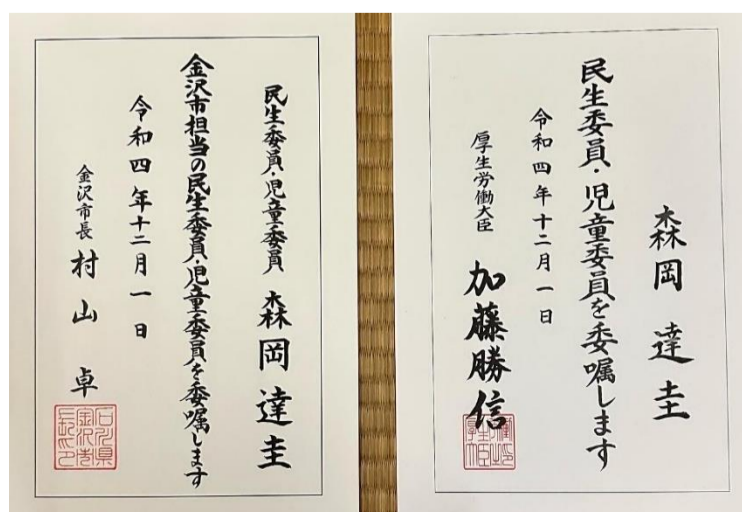 森岡達圭
民生委員・児童委員を委嘱します
令和四年十二月一日
厚生労働大臣 加藤勝信
民生委員・児童委員 森岡達圭
金沢市担当の民生委員・児童委員を委嘱します
令和四年十二月一日
金沢市長 村山卓
石川県
金沢市
長之印